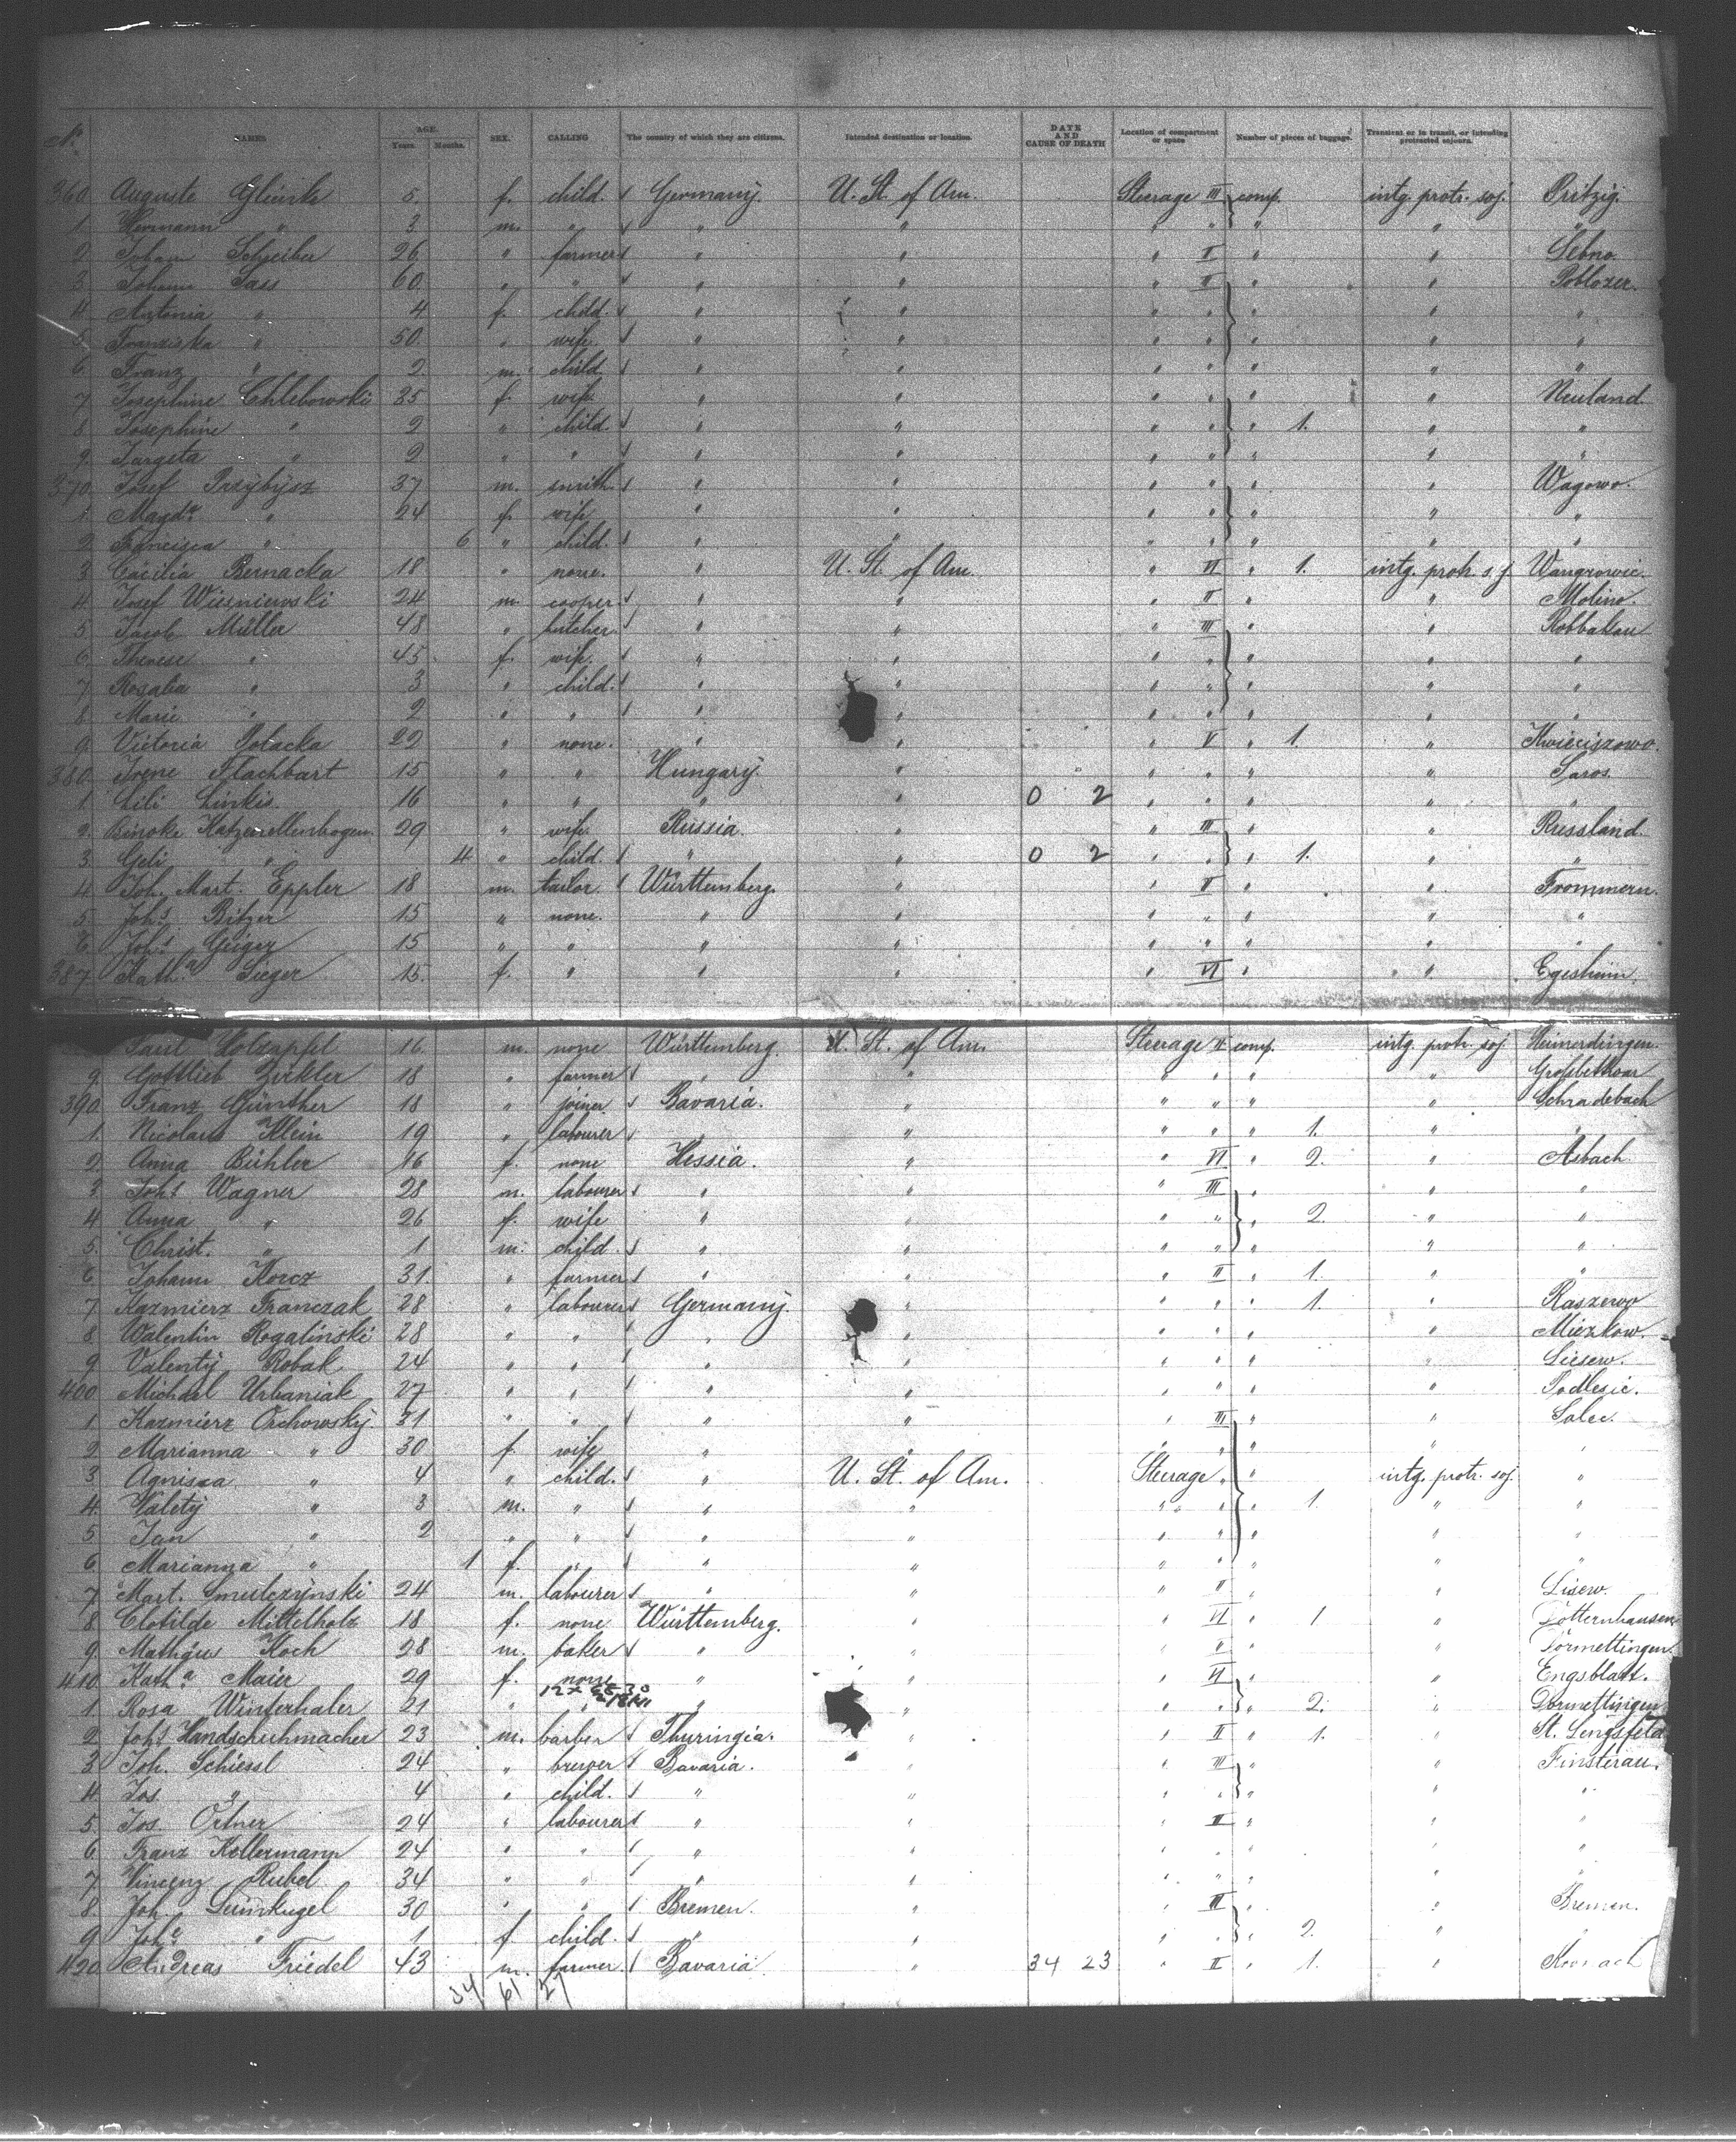 No. NAMES AGE. Years. Months. SEX. CALLING The country of which they are citizens. Intended destination or location. DATE AND CAUSE OF DEATH Location of compartment or space Number of pieces of baggage. Transient or in transit, or intending protracted sojourn.
360 Auguste 5. f. child. Germany. U. St. of Am. Steerage III comp. intg. protr. soj. Pritzig.
1. Hermann " 3 m. " " " " " " " "
2 Johann Schreiber 26. " farmer " " " II " " Lebno.
3. Johann Sass 60. " " " " " III " " Poblozer.
4. Antonia " 4 f. child. " " " " " " "
5 Franziska " 50. " wife. " " " " " " "
6. Franz " 2. m. child " " " " " " "
7 Josephine Chlebowski 35 f. wife. " " " " " " Neuland.
8. Josephine " 2 " child. " " " " " 1. " "
9. " 2 " " " " " " " " "
370. Josef Przybysz 37 m. smith. " " " " " " Wagowo.
1. Magda " 24 f. wife " " " " " " "
2 Francisca " 6 " child. " " " " " " "
3 Cäcilia Bernacka 18 " none. " U. St. of Am. " VI " 1. intg. protr. s.j. Wangrowic.
4. Josef Wisniewski 24 m. cooper. " " " II " " Molino.
5 Jacob Müller 48 " butcher. " " " III " " Robbakau
6. Therese " 45. f. wife. " " " " " " "
7 Rosalia " 3 " child. " " " " " " "
8. Marie " 2 " " " " " " " " "
9. Victoria Polacka 22 " none. " " " V " 1. " Kwieciszowo.
380. Irene Flachbart 15 " " Hungary. " " " " " Saros.
1. Lili Linkis. 16 " " " " 0 2 " " " " "
2. Binoke Katzenellenbogen. 29 " wife. Russia. " " III " " Russland.
3. Geli " 4 " child. " " 0 2 " " " 1. " "
4. Joh. Mart. Eppler 18 m. tailor. Württemberg. " " II " " Frommern.
5. Johs. Bitzer 15 " none. " " " " " " "
6. Johs. Geiger 15 " " " " " " " " "
387 Katha Sieger 15. f. " " " " VI " " Egesheim
Paul Holzapfel 16. m. none Württemberg. U. St. of Am. Steerage II comp. intg. protr. soj. Heimerdingen.
9. Gottlieb Zirkler 18 " farmer " " " " " "
390. Franz Günther 18 " joiner Bavaria. " " " " " Schradebach
1. Nicolaus Klein 19 " labourer " " " " " 1. " "
2. Anna Bühler 16 f. none Hessia. " " VI " 2. " Asbach.
3. Johs Wagner 28 m. labourer " " " III " " "
4 Anna " 26 f. wife " " " " " 2. " "
5. Christ. " 1 m. child. " " " " " " "
6 Johann Korcz 31. " farmer " " " II " 1. " "
7 Kazmierz Franczak 28 " labourer Germany. " " " " 1. " Raszewo
8 Walentin Rogalinski 28 " " " " " " " " Miezkow.
9 Valenty Robak 24 " " " " " " " " Liesew.
400 Michael Urbaniak 27 " " " " " " " " Podlesic.
1 Kazmierz Orchowsky. 31 " " " " " III " " Solec.
2 Marianna " 30 f. wife " " " " " " "
3 Agnisca " 4 " child. " U. St. of Am. Steerage " " intg. protr. soj. "
4. Valety " 3 m. " " " " " " 1. " "
5 Jan " 2 " " " " " " " " "
6 Marianna " 1 f. " " " " " " " "
7 Mart. Smulczynski 24 m. labourer " " " II " " Lisew.
8 Clotilde Mittelholz 18 f. none Württemberg. " " VI " 1 " Dotternhausen
9. Mathäus Koch 28 m. baker " " " II " " Dormettingen.
410 Katha Maier 29 f. none " " " VI " " Engsblatt.
1. Rosa Winterhaler 21 " " " " " " " 2. " Dormettingen
2 Johs Handschuhmacher 23 m. barber Thuringia. " " II " 1. " St. Lengsfeld
3 Joh. Schiessl 24 " brewer Bavaria. " " III " " Finsterau.
4 Jos. " 4 " child. " " " " " " "
5. Jos. Ortner 24 " labourer " " " II " " "
6 Franz Kellermann 24 " " " " " " " " "
7 Vincenz Rubel 34 " " " " " " " " "
8 Joh. 30 " " Bremen. " " III " " Bremen.
9 " 1 f child. " " " " " 2. "
420 Andreas Friedel 43 m. farmer. Bavaria " 34 23 " II " 1. "
34 61 27